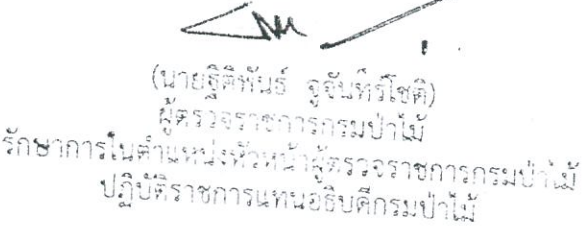 (นายฐิติพันธ์ จูจันทร์โชติ)
ผู้ตรวจราชการกรมป่าไม้
รักษาการในตำแหน่งหัวหน้าผู้ตรวจราชการกรมป่าไม้
ปฏิบัติราชการแทนอธิบดีกรมป่าไม้